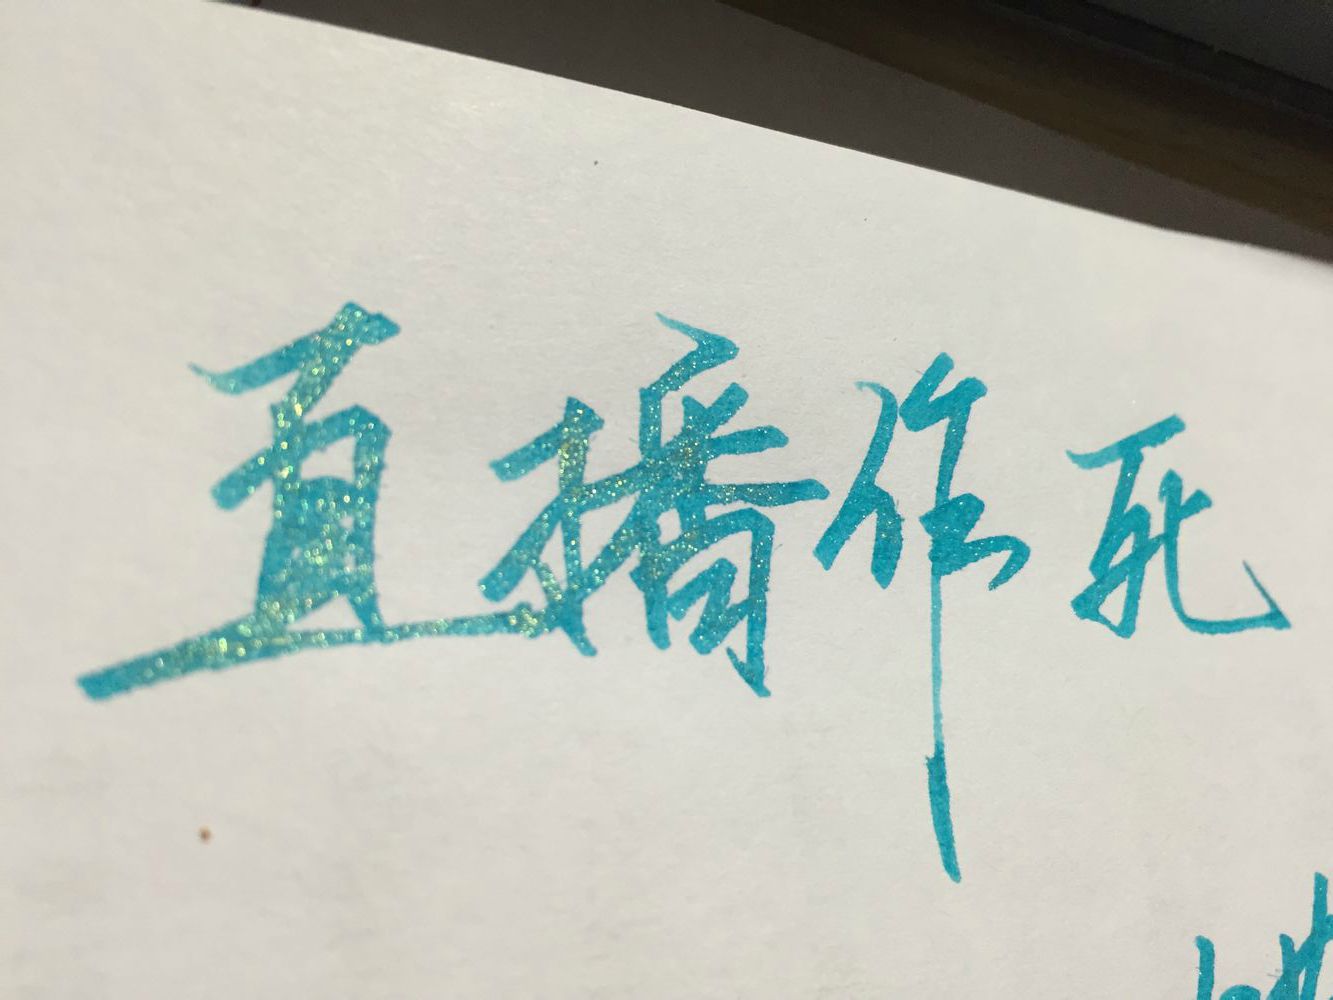 直播作死